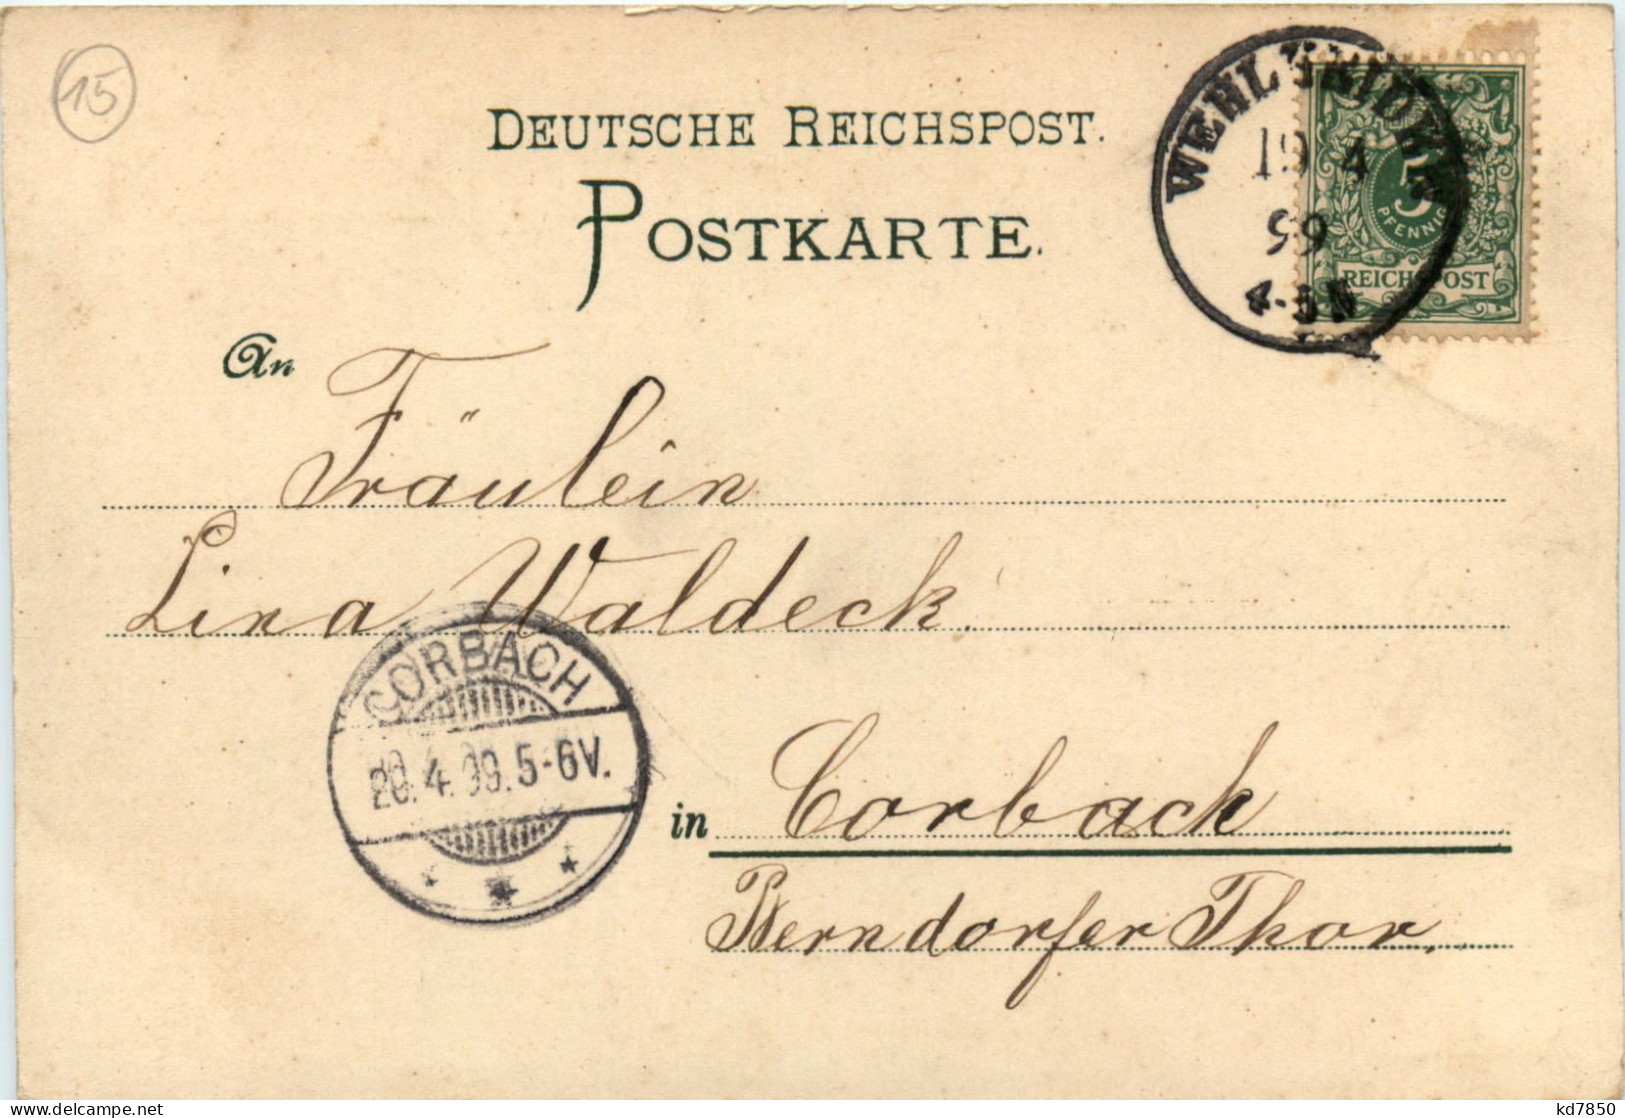 15
DEUTSCHE REICHSPOST.
POSTKARTE.
WEHLHEIDEN
19 4
99
4-5 N
5
PFENNIG
REICHSPOST
An Fräulein
Lina Waldeck.
CORBACH
20.4.99.5-6V.
in Corbach
Berndorfer Thor.
delcampe.net
kd7850